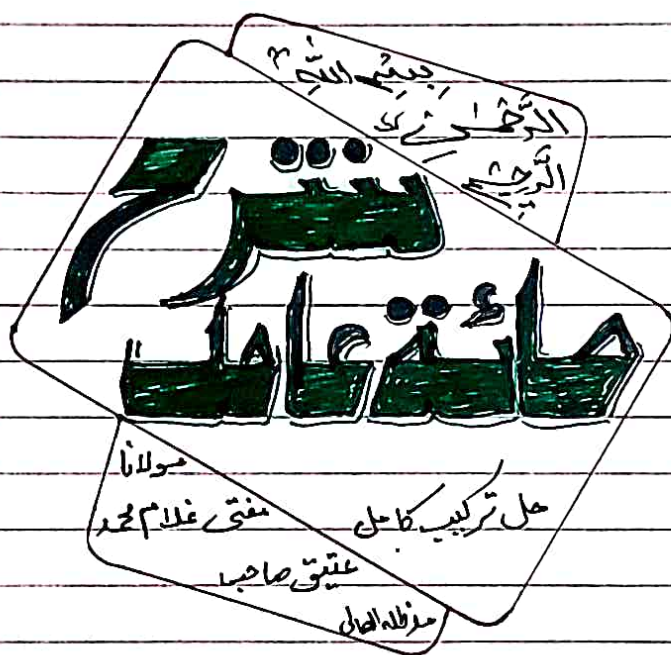 بِسْمِ اللّٰهِ
الرَّحْمٰنِ
الرَّحِيْمِ
شرح
مائة عامل
حل ترکیب کامل
مولانا
مفتی غلام محمد
عتیق صاحب
مدظلہ العالی